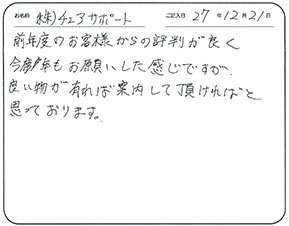 お名前 (株)チェアサポート ご記入日 27年12月21日
前年度のお客様からの評判が良く
今度年もお願いした感じですが、
良い物が有れば案内して頂ければと
思っております。